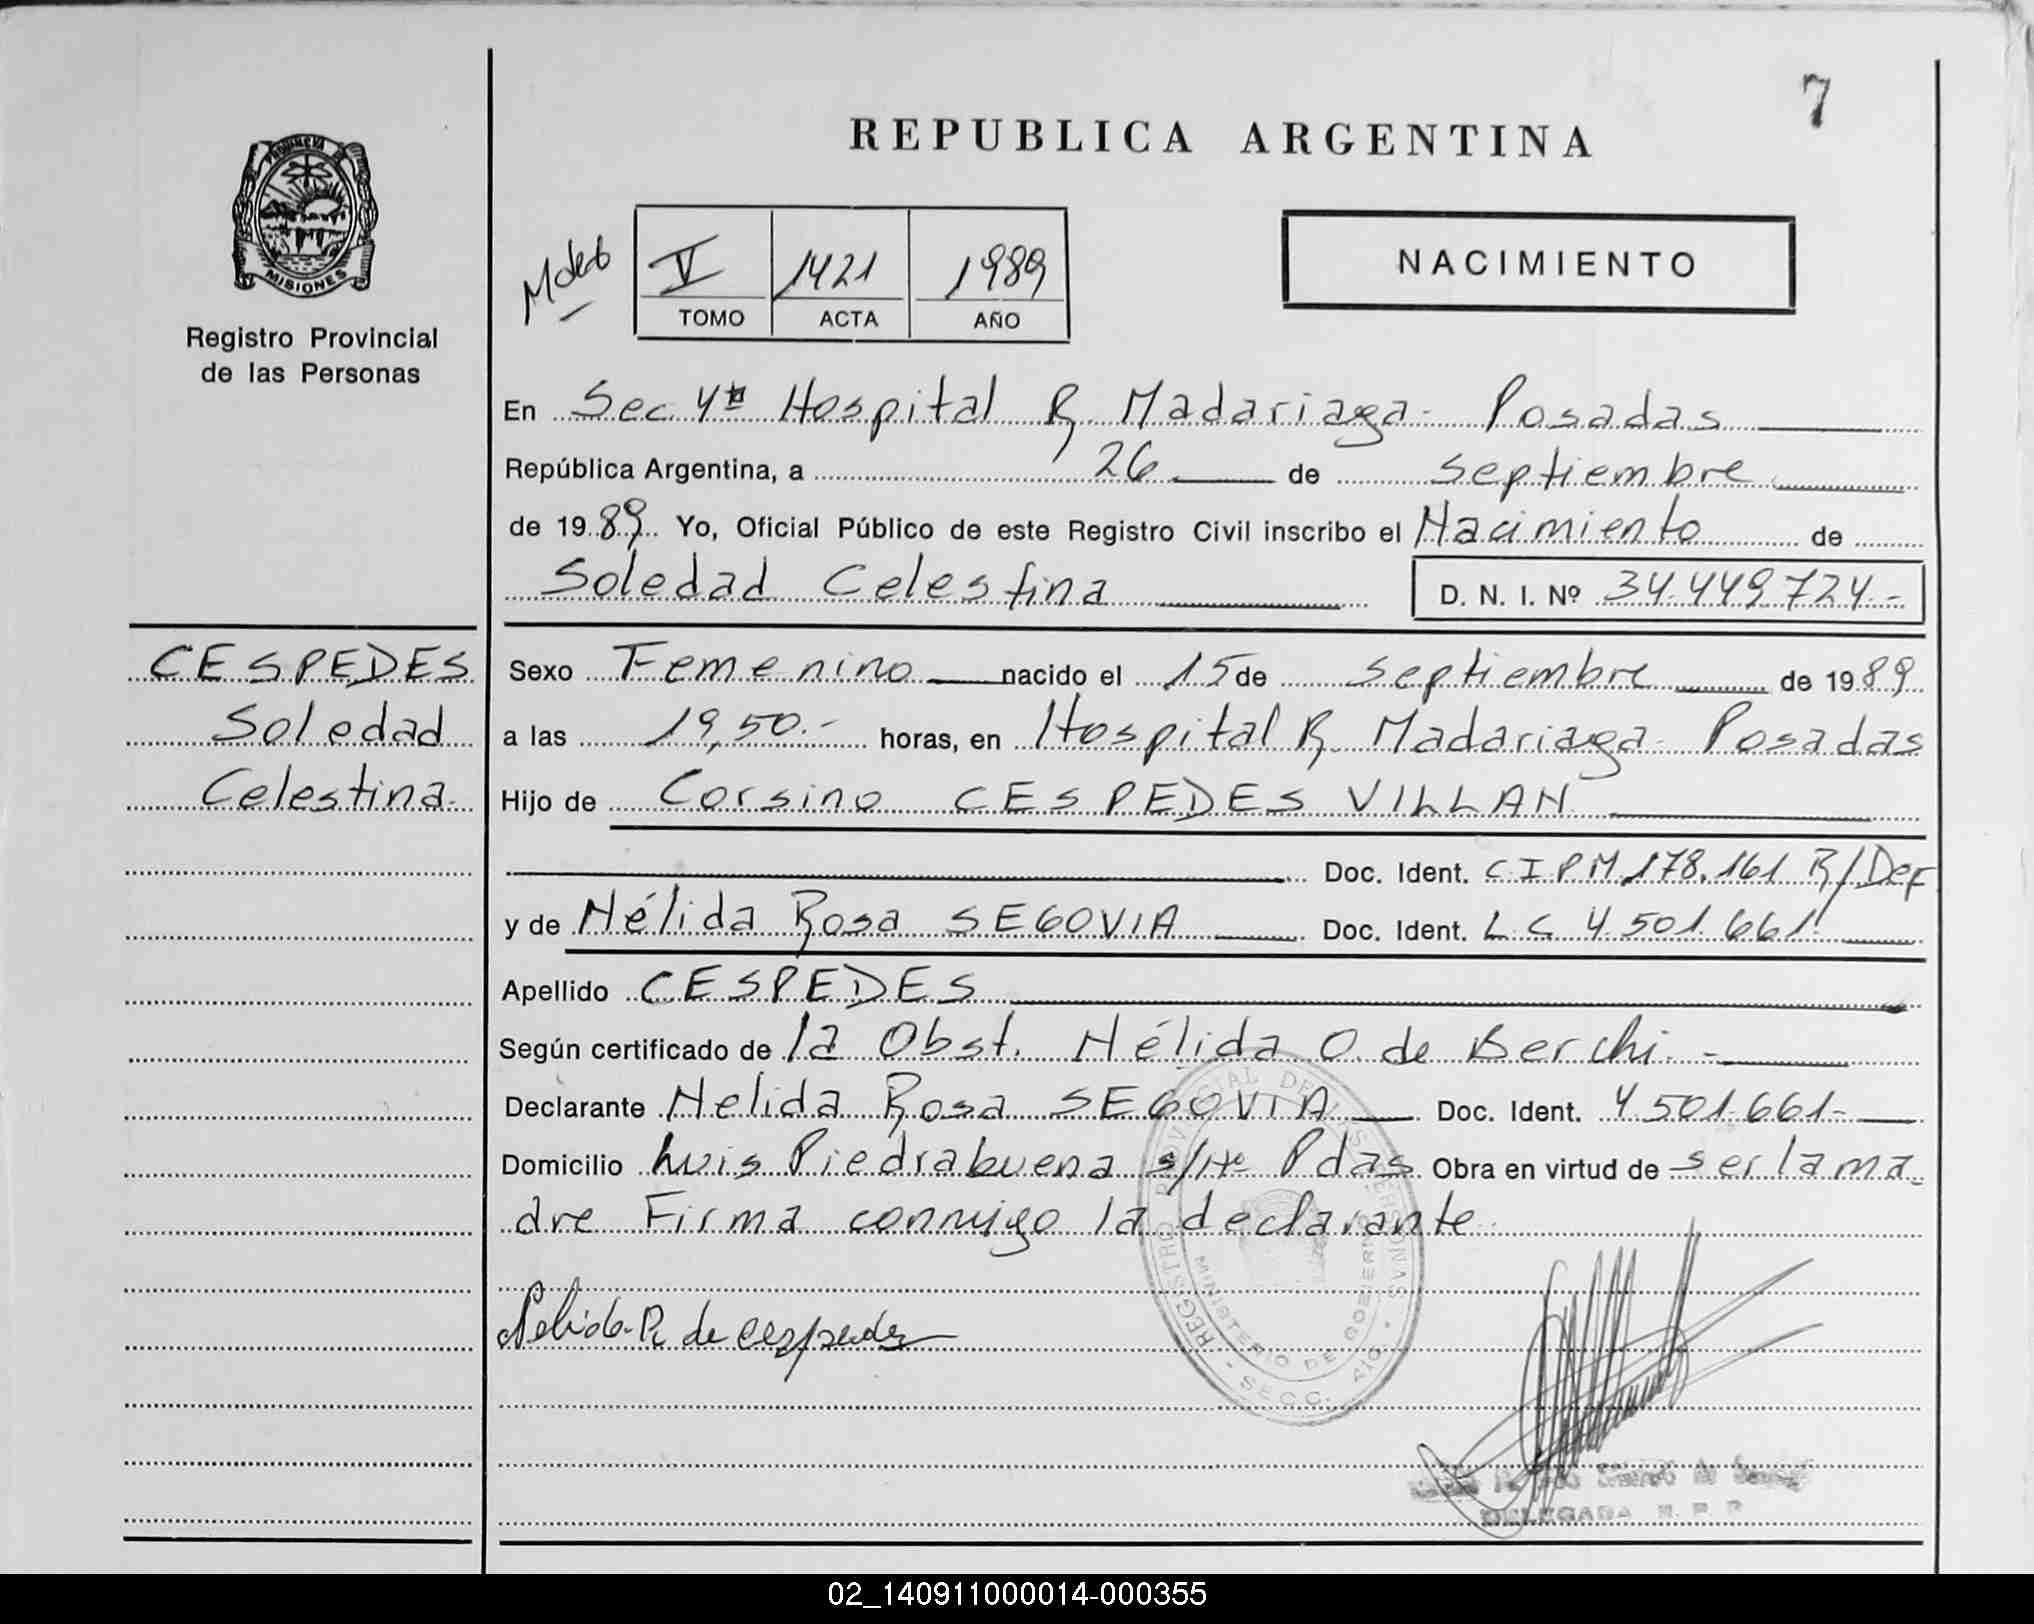 7
REPUBLICA ARGENTINA
PROVINCIA DE
MISIONES
Registro Provincial
de las Personas
V 1421 1989
TOMO ACTA AÑO
NACIMIENTO
En Sec 4ta Hospital R. Madariaga - Posadas
República Argentina, a 26 de septiembre
de 1989 Yo, Oficial Público de este Registro Civil inscribo el Nacimiento de
Soledad Celestina D. N. I. Nº 34.449.724.-
CESPEDES
Soledad
Celestina
Sexo Femenino nacido el 15 de septiembre de 1989
a las 19,50.- horas, en Hospital R. Madariaga - Posadas
Hijo de Corsino CESPEDES VILLAN
Doc. Ident. C I P M 178.161 R/Def
y de Nélida Rosa SEGOVIA Doc. Ident. L C 4.501.661
Apellido CESPEDES
Según certificado de la Obst. Nélida O. de Berchi.-
Declarante Nelida Rosa SEGOVIA Doc. Ident. 4.501.661-
Domicilio Luis Piedrabuena s/Nº Pdas Obra en virtud de ser la ma-
dre Firma conmigo la declarante
Nelida R. de Cespedes
REGISTRO PROVINCIAL DE LAS PERSONAS
MINISTERIO DE GOBIERNO
SECC. 4TO
DELEGADA R. P. P.
02_140911000014-000355